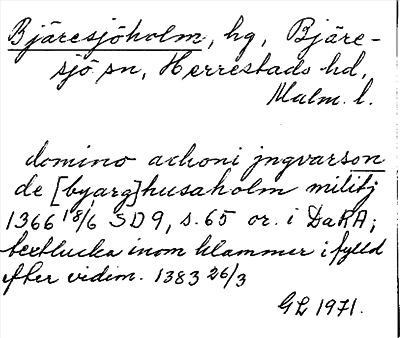 Bjäresjöholm, hg, Bjäre-
sjö sn, Herrestads hd,
Malm. l.
domino achoni jngvarson
de [byarg]husaholm militj
1366 18/6 SD9, s. 65 or. i DaRA;
textlucka inom klammer ifylld
efter vidim. 1383 26/3
GL 1971.